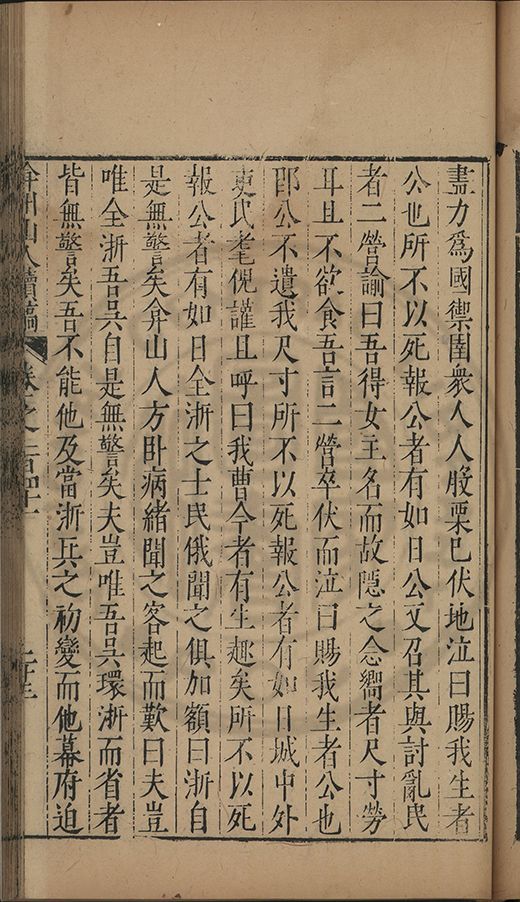 盡力爲國禦圉衆人人股栗巳伏地泣曰賜我生者
公也所不以死報公者有如日公又召其與討亂民
者二營諭曰吾得女主名而故隱之念嚮者尺寸勞
耳且不欲食吾言二營卒伏而泣曰賜我生者公也
卽公不遺我尺寸所不以死報公者有如日城中外
吏民耄倪讙且呼曰我曹今者有生趣矣所不以死
報公者有如日全浙之士民俄聞之俱加額曰浙自
是無警矣弇山人方臥病緒聞之客起而歎曰夫豈
唯全浙吾吳自是無警矣夫豈唯吾吳環浙而省者
皆無警矣吾不能他及當浙兵之初變而他幕府迫
弇州山人續稿 卷之一百四十一 二十三